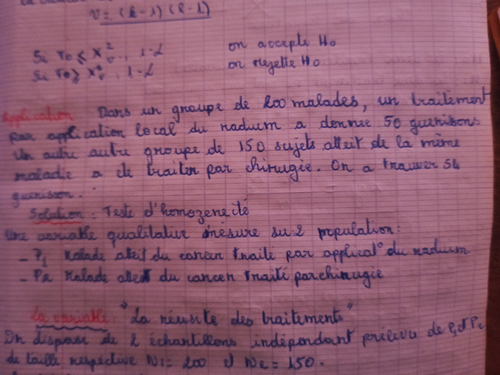 V = (k - 1) (l - 1)
Si r0 ≤ X²v, 1-α on accepte H0
Si r0 > X²v, 1-α on rejette H0
Application Dans un groupe de 200 malades, un traitement
par application local du radium a donnée 50 guerisons.
Un autre autre groupe de 150 sujets atteit de la même
maladie a de traiter par chirugie. On a trouver 54
guerison.
Solution : Teste d'homogeneité
Une variable qualitative mesure sur 2 population:
- P1 Malade atteit du cancer traité par applicat° du radium
- P2 Malade atteit du cancer traité par chirugie
La variable "La réusite des traitements"
On dispose de 2 échantillons indépendant prélevée de P1 et P2
de taille respective N1 = 200 et N2 = 150.